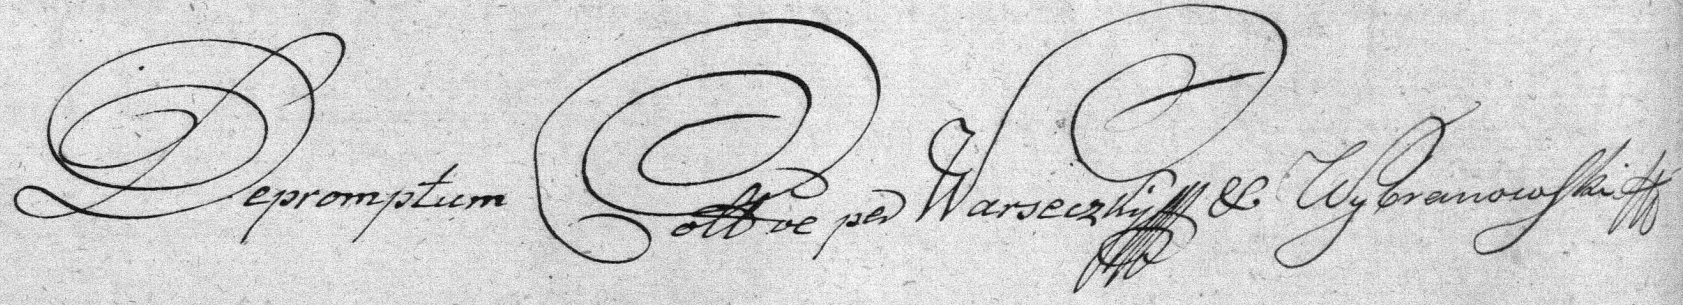 Depromptum Collve per Warseczkij & Wybranowski